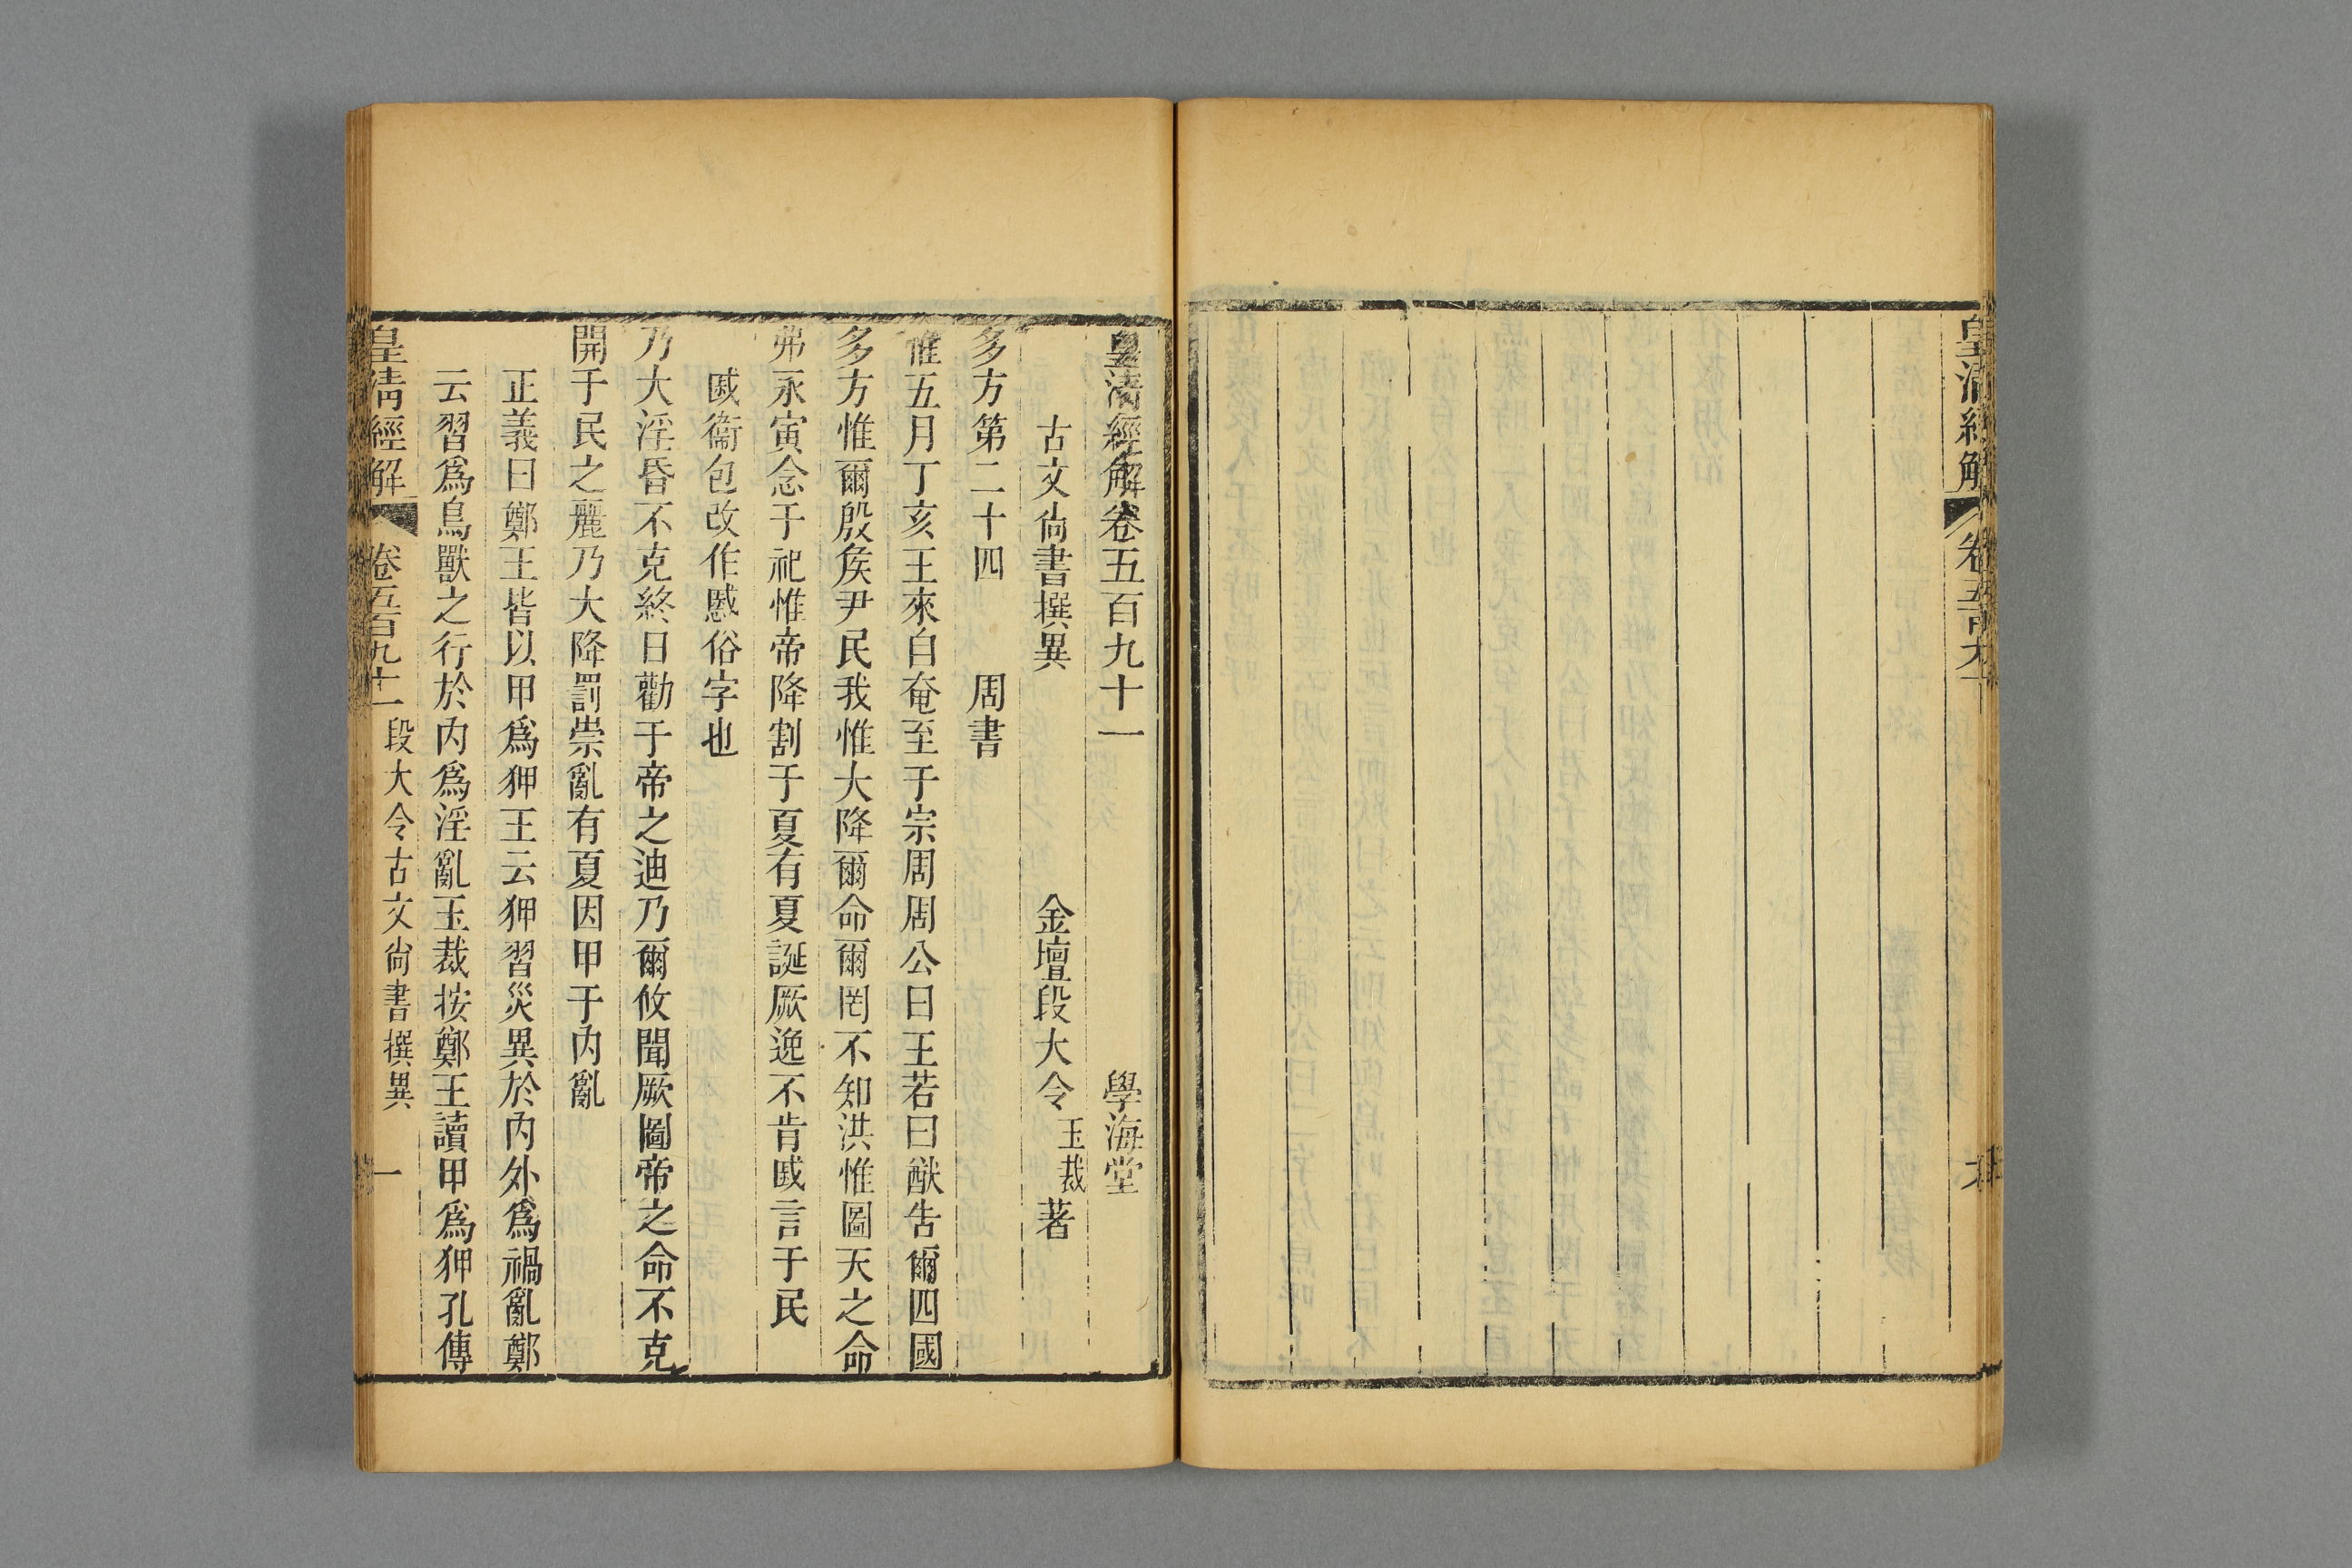 皇清經解
皇清經解卷五百九十一 學海堂
古文尙書撰異 金壇段大令玉裁著
多方第二十四 周書
惟五月丁亥王來自奄至于宗周周公曰王若曰猷告爾四國
多方惟爾殷矦尹民我惟大降爾命爾罔不知洪惟圖天之命
弗永寅念于祀惟帝降割于夏有夏誕厥逸不肯慼言于民
慼衞包改作慼俗字也
乃大淫昏不克終日勸于帝之迪乃爾攸聞厥圖帝之命不克
開于民之麗乃大降罰崇亂有夏因甲于內亂
正義曰鄭王皆以甲爲狎王云狎習災異於內外爲禍亂鄭
云習爲鳥獸之行於內爲淫亂玉裁按鄭王讀甲爲狎孔傳
皇清經解 卷五百九十一 段大令古文尙書撰異 一